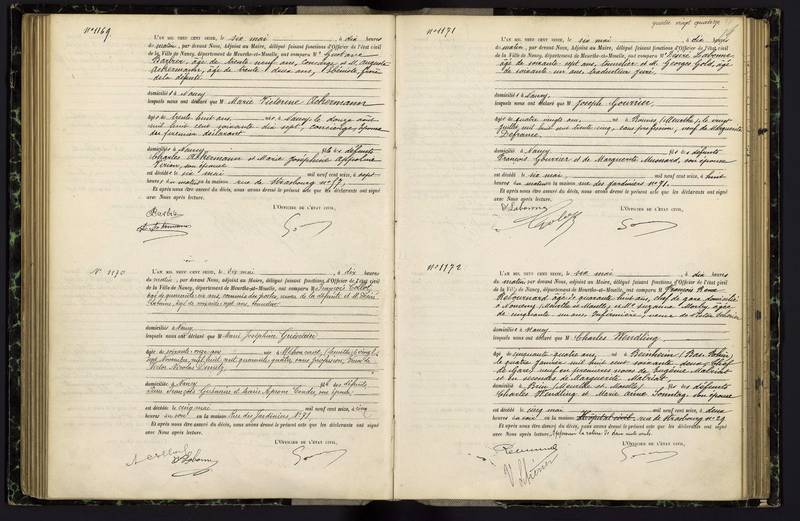 N° 1169
L'AN MIL NEUF CENT SEIZE, le six mai, à dix heures
du matin, par devant Nous, Adjoint au Maire, délégué faisant fonctions d'Officier de l'état civil
de la Ville de Nancy, département de Meurthe-et-Moselle, ont comparu M. Gustave
Barbier, âgé de trente neuf ans, concierge et M. Auguste
Ackermann, âgé de trente deux ans, ébéniste, frère
de la défunte
domiciliés à Nancy
lesquels nous ont déclaré que M Marie Victorine Ackermann
âgée de trente huit ans, née à Nancy, le douze août
mil huit cent soixante dix sept, concierge, épouse
du premier déclarant
domiciliée à Nancy, fille des défunts
Charles Ackermann et Marie Joséphine Appoline
son épouse
est décédée le six mai mil neuf cent seize, à sept
heures du matin en la maison rue de Strasbourg n° 17.
Et après nous être assuré du décès, nous avons dressé le présent acte que les déclarants ont signé
avec Nous après lecture.
L'OFFICIER DE L'ÉTAT CIVIL,
Barbier
Ackermann
N° 1170
L'AN MIL NEUF CENT SEIZE, le six mai, à dix heures
du matin, par devant Nous, Adjoint au Maire, délégué faisant fonctions d'Officier de l'état civil
de la Ville de Nancy, département de Meurthe-et-Moselle, ont comparu M. François
âgé de quarante six ans, commis des postes, de la défunte et M.
Labonne, âgé de soixante sept ans, tonnelier
domiciliés à Nancy
lesquels nous ont déclaré que M Marie Joséphine
âgée de soixante onze ans, née à (Meurthe) le vingt
sept Novembre mil huit cent quarante quatre, sans profession, veuve de
Victor Nicolas
domiciliée à Nancy fille des défunts
François et Marie son épouse
est décédée le cinq mai mil neuf cent seize, à cinq
heures du soir en la maison Rue des Jardiniers N° 71
Et après nous être assuré du décès, nous avons dressé le présent acte que les déclarants ont signé
avec Nous après lecture.
L'OFFICIER DE L'ÉTAT CIVIL,
V. Labonne
quatre vingt quatorze
N° 1171
L'AN MIL NEUF CENT SEIZE, le six mai, à dix heures
du matin, par devant Nous, Adjoint au Maire, délégué faisant fonctions d'Officier de l'état civil
de la Ville de Nancy, département de Meurthe-et-Moselle, ont comparu M. Labonne
âgé de soixante sept ans, tonnelier et M. Georges Golb, âgé
de soixante un ans, traducteur juré
domiciliés à Nancy,
lesquels nous ont déclaré que M Joseph Gouvrier
âgé de quatre vingts ans, né à (Meurthe), le vingt
juillet mil huit cent trente cinq, sans profession, veuf de Marguerite
Defrance
domicilié à Nancy fils des défunts
François Gouvrier et de Marguerite son épouse
est décédé le six mai, mil neuf cent seize, à huit
heures du matin en la maison rue des Jardiniers n° 71.
Et après nous être assuré du décès, nous avons dressé le présent acte que les déclarants ont signé
avec Nous après lecture.
L'OFFICIER DE L'ÉTAT CIVIL,
V. Labonne
Golb
N° 1172
L'AN MIL NEUF CENT SEIZE, le six mai, à dix heures
du matin, par devant Nous, Adjoint au Maire, délégué faisant fonctions d'Officier de l'état civil
de la Ville de Nancy, département de Meurthe-et-Moselle, ont comparu M. François
âgé de quarante huit ans, chef de gare domicilié
à Nomeny (Meurthe et Moselle) et Mme Suzanne Marly, âgée
de cinquante ans, infirmière, veuve de Victor
domiciliée à Nancy
lesquels nous ont déclaré que M Charles Wendling
âgé de cinquante quatre ans, né à Bernheim (Bas Rhin),
le quatre janvier mil huit cent soixante deux, chef
de gare, veuf en premières noces de Eugénie
et en secondes de Marguerite
domicilié à Brin (Meurthe et Moselle), fils des défunts
Charles Wendling et Marie Anne Sonntag son épouse
est décédé le cinq mai mil neuf cent seize, à deux
heures du soir en la maison Hôpital civil, rue de Strasbourg n° 29
Et après nous être assuré du décès, nous avons dressé le présent acte que les déclarants ont signé
avec Nous après lecture.
L'OFFICIER DE L'ÉTAT CIVIL,